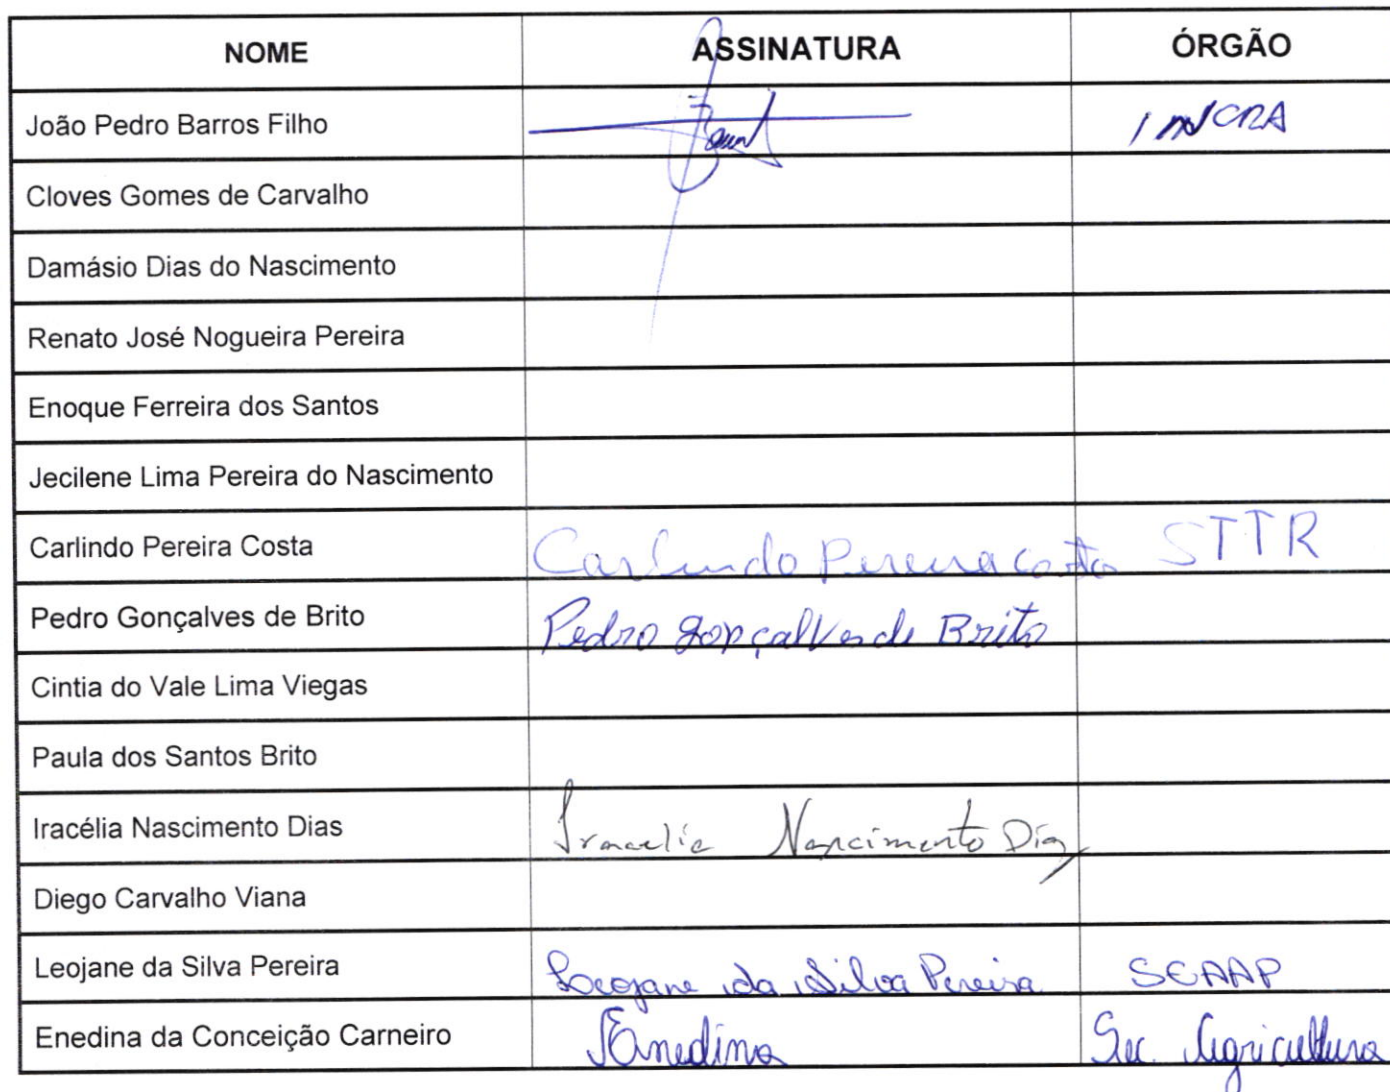 NOME ASSINATURA ÓRGÃO
João Pedro Barros Filho INCRA
Cloves Gomes de Carvalho
Damásio Dias do Nascimento
Renato José Nogueira Pereira
Enoque Ferreira dos Santos
Jecilene Lima Pereira do Nascimento
Carlindo Pereira Costa Carlindo Pereira Costa STTR
Pedro Gonçalves de Brito Pedro Gonçalves de Brito
Cintia do Vale Lima Viegas
Paula dos Santos Brito
Iracélia Nascimento Dias Iracelia Nascimento Dias
Diego Carvalho Viana
Leojane da Silva Pereira Leojane da Silva Pereira SEAAP
Enedina da Conceição Carneiro Enedina Sec. Agricultura